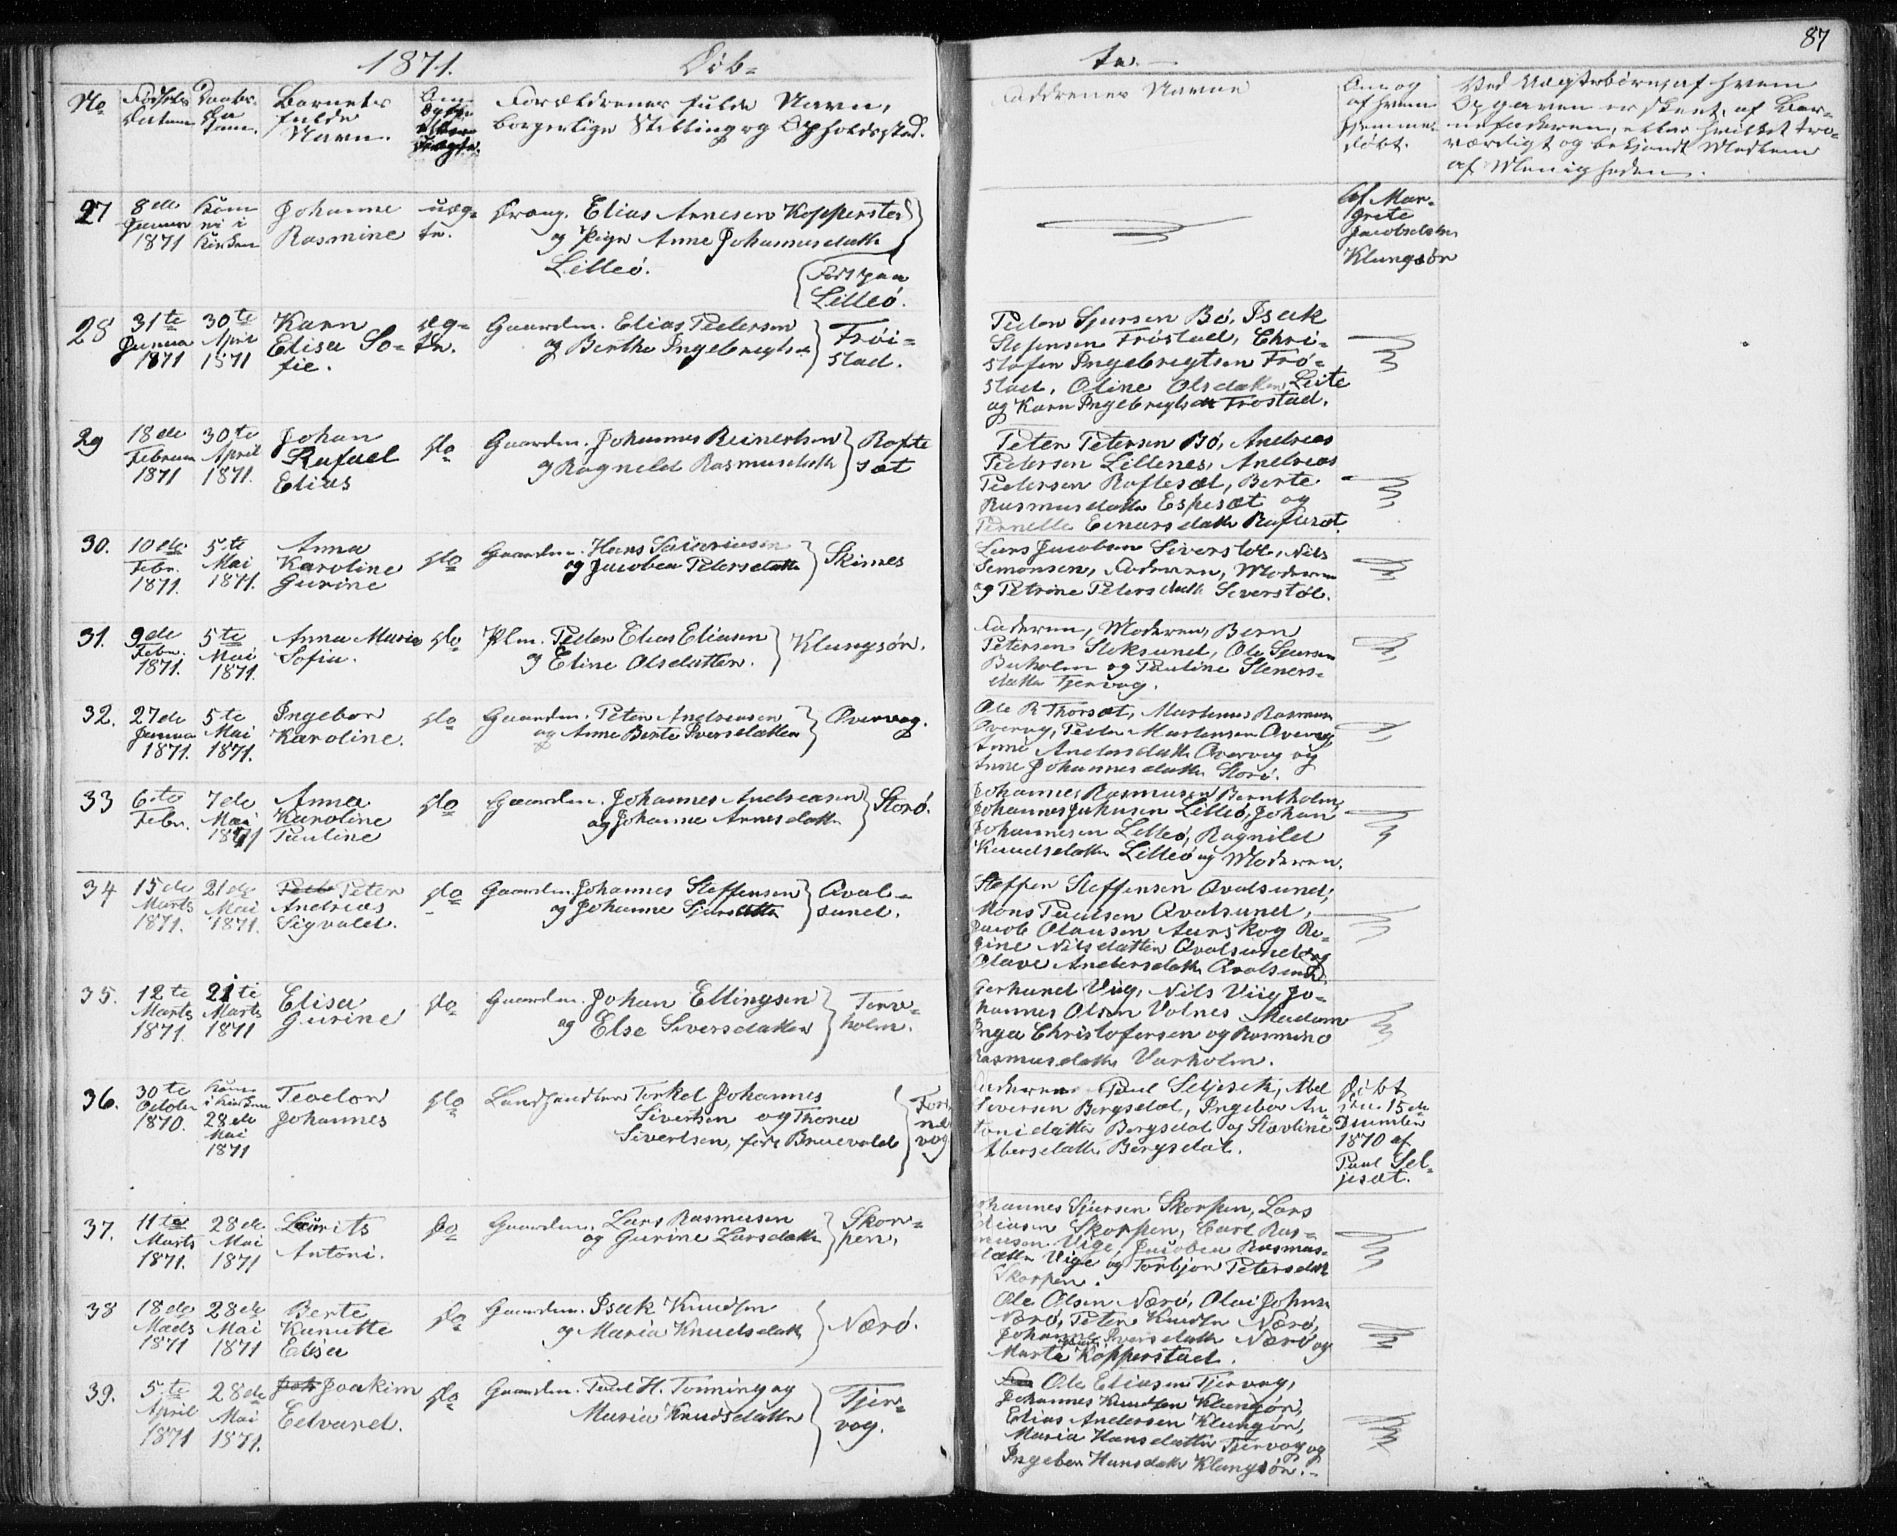 87
1871. Døb- te.
No Fødsels Datum Daabs Datum. Barnets fulde Navn. Om Ægte eller uægte. Forældrenes fulde Navn, borgerlige Stilling og Opholdssted.
Faddrenes Navne
Om og af hvem hjemmedøbt.
Ved Uægtebørn, af hvem
Opgaven er skeet, af Bar-
nefaderen, eller hvilket tro-
værdigt og bekjendt Medlem
af Menigheden.
27 8de Januar 1871
i Kirken
Johanne
Rasmine
uæg-
te.
Dreng. Elias Arnesen Kopperstad
og Pige Anne Johannesdatter
Lilleø.
Født paa
Lilleø.
Af Mar-
grete
Jacobsdatter
Klungsør
28 31te Januar 1871
30te April 1871
Karn
Elisa So-
fie.
æg-
te.
Gaardm. Elias Pedersen
og Berthe Ingebregtsd.
Frøi-
stad.
Peder Sjursen Bø, Isak
Stefensen Frøstad, Chri-
stofen Ingebregtsen Frø-
stad, Oline Olsdatter Leite
og Karn Ingebregtsdt Frøstad.
29 18de Februar 1871
30te April 1871.
Johan
Rafael
Elias
do
Gaardm. Johannes Reinertsen
og Ragnild Rasmusdatter
Rafte
sæt
Peter Petersen Bø, Andreas
Pedersen Lillenes, Andreas
Pedersen Raftesæt, Berte
Rasmusdatter Espesæt og
Pernelle Einarsdatter Raftesæt.
30. 10de Febr. 1871.
5te Mai 1871.
Anna
Karoline
Gurine
do
Gaardm. Hans
og Jacobea Petersdatter
Skinnes
Lars Jacobsen Siverstøl, Nils
Simonsen, Faderen, Moderen
og Petrine Petersdatter Siverstøl.
31. 9de Febr. 1871.
5te Mai 1871.
Anna Maria
Sofia.
do
Plm. Peder Elias Eliasen
og Eline Olsdatter.
Klungsør.
Faderen, Moderen, Bern
Petersen Stoksund, Ole Sjursen
Buholm og Pauline Steners-
datter Tjervag.
32. 27de Januar 1871.
5te Mai 1871.
Ingebor
Karoline.
do
Gaardm. Peter Andreasen
og Anne Berte Iversdatter
Overvag.
Ole R Thorsæt, Martinus Rasmusen
Overvag, Peder Martensen Overvag
Anne Andersdatter Overvag og
Anne Johannesdatter Storø.
33 6te Febr.
7de Mai 1871
Anna
Karoline
Pauline
do
Gaardm. Johannes Andreasen
og Johanne Arnesdatter
Storø.
Johannes Rasmusen Berntholm,
Johannes Lilleø, Johan
Johannesen Lilleø, Ragnild
Knudsdatter Lilleø og Moderen.
34 15de Marts 1871.
21de Mai 1871.
Peter
Andreas
Sigvald.
do
Gaardm. Johannes Steffensen
og Johanne Sjursdatter
Qval-
sund.
Steffen Steffensen Qvalsund,
Mons Paulsen Qvalsund,
Jacob Olausen Aurskog Re-
gine Nilsdatter Qvalsund og
Olave Andersdatter Qvalsund.
35. 12te Marts 1871.
21te Marts 1871
Elisa
Gurine
do
Gaardm. Johan Ellingsen
og Else Siversdatter
Torv-
holm.
Gerhard Viig, Nils Viig Jo-
hannes Olsen Volnes Madam
Inga Christofersen og Rasmine
Rasmusdatter Varholm.
36. 30te October 1870.
i Kirken 28de Mai 1871
Teodor
Johannes
do
Landhandler Torkel Johannes
Sivertsen og Thona
Sivertsen, født Bruevold
Faderen Paul Seljesæt, Abel
Siversen Bergsdal, Ingebor An-
tonidatter Bergsdal og
Bergsdal.
Døbt
den 15de
December
1870 af
Paul Sel-
jesæt.
37. 11te Marts 1871.
28de Mai 1871
Laurits
Antoni.
do
Gaardm. Lars Rasmusen
og Gurine Larsdatter
Skor-
pen.
Johannes Sjursen Skorpen, Lars
Eliasen Skorpen, Carl Ras-
musen Vige, Jacobea Rasmus-
datter Vige og Torbjør Petersdatter
Skorpen.
38 18de Marts 1871
28de Mai 1871
Berte
Kanutte
Elisa
do
Gaardm. Isak Knudsen
og Maria Knudsdatter
Nærø.
Ole Olsen Nærø, Olai Johnsen
Nærø, Peter Knudsen Nærø,
Johanne Iversdatter Nærø og
Marta Kopperstad.
39. 5te April 1871
28de Mai 1871.
Joakim
Edvard.
do
Gaardm. Paul H. Tonning og
Maria Knudsdatter
Tjer-
vag.
Ole Eliasen Tjervag,
Johannes Knudsen Klungsør,
Elias Andersen Klungsør,
Maria Hansdatter Tjervag og
Ingebor Hansdatter Klungsør.